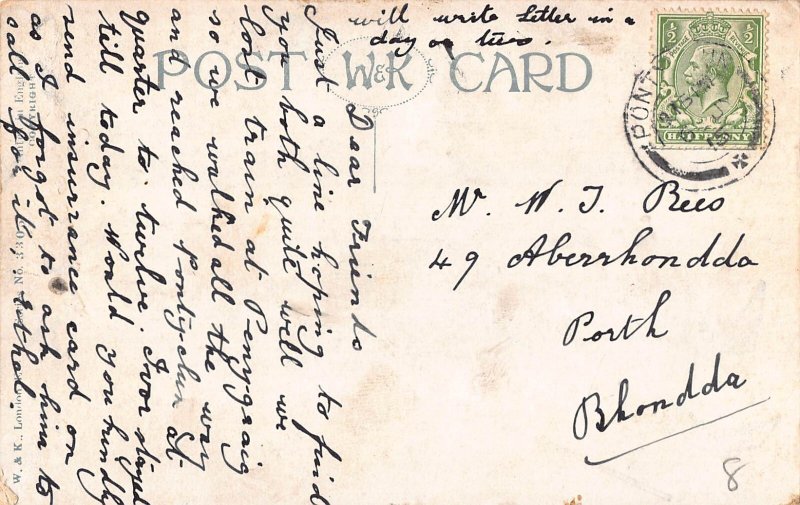 will write Letter in a
day or two.
POST W&K CARD
Dear Friends
Just a line hoping to find
you both quite well we
lost train at Penygraig
so we walked all the way
and reached Pontyclun at
quarter to twelve. Ivor stayed
till today. Would you kindly
send insurance card on
as I forgot to ask him to
call for it, Ethel.
Mr. W. J. Rees
49 Aberrhondda
Porth
Rhondda
½ ½
HALFPENNY
PONT
W & K., London
No.
COPYRIGHT
8